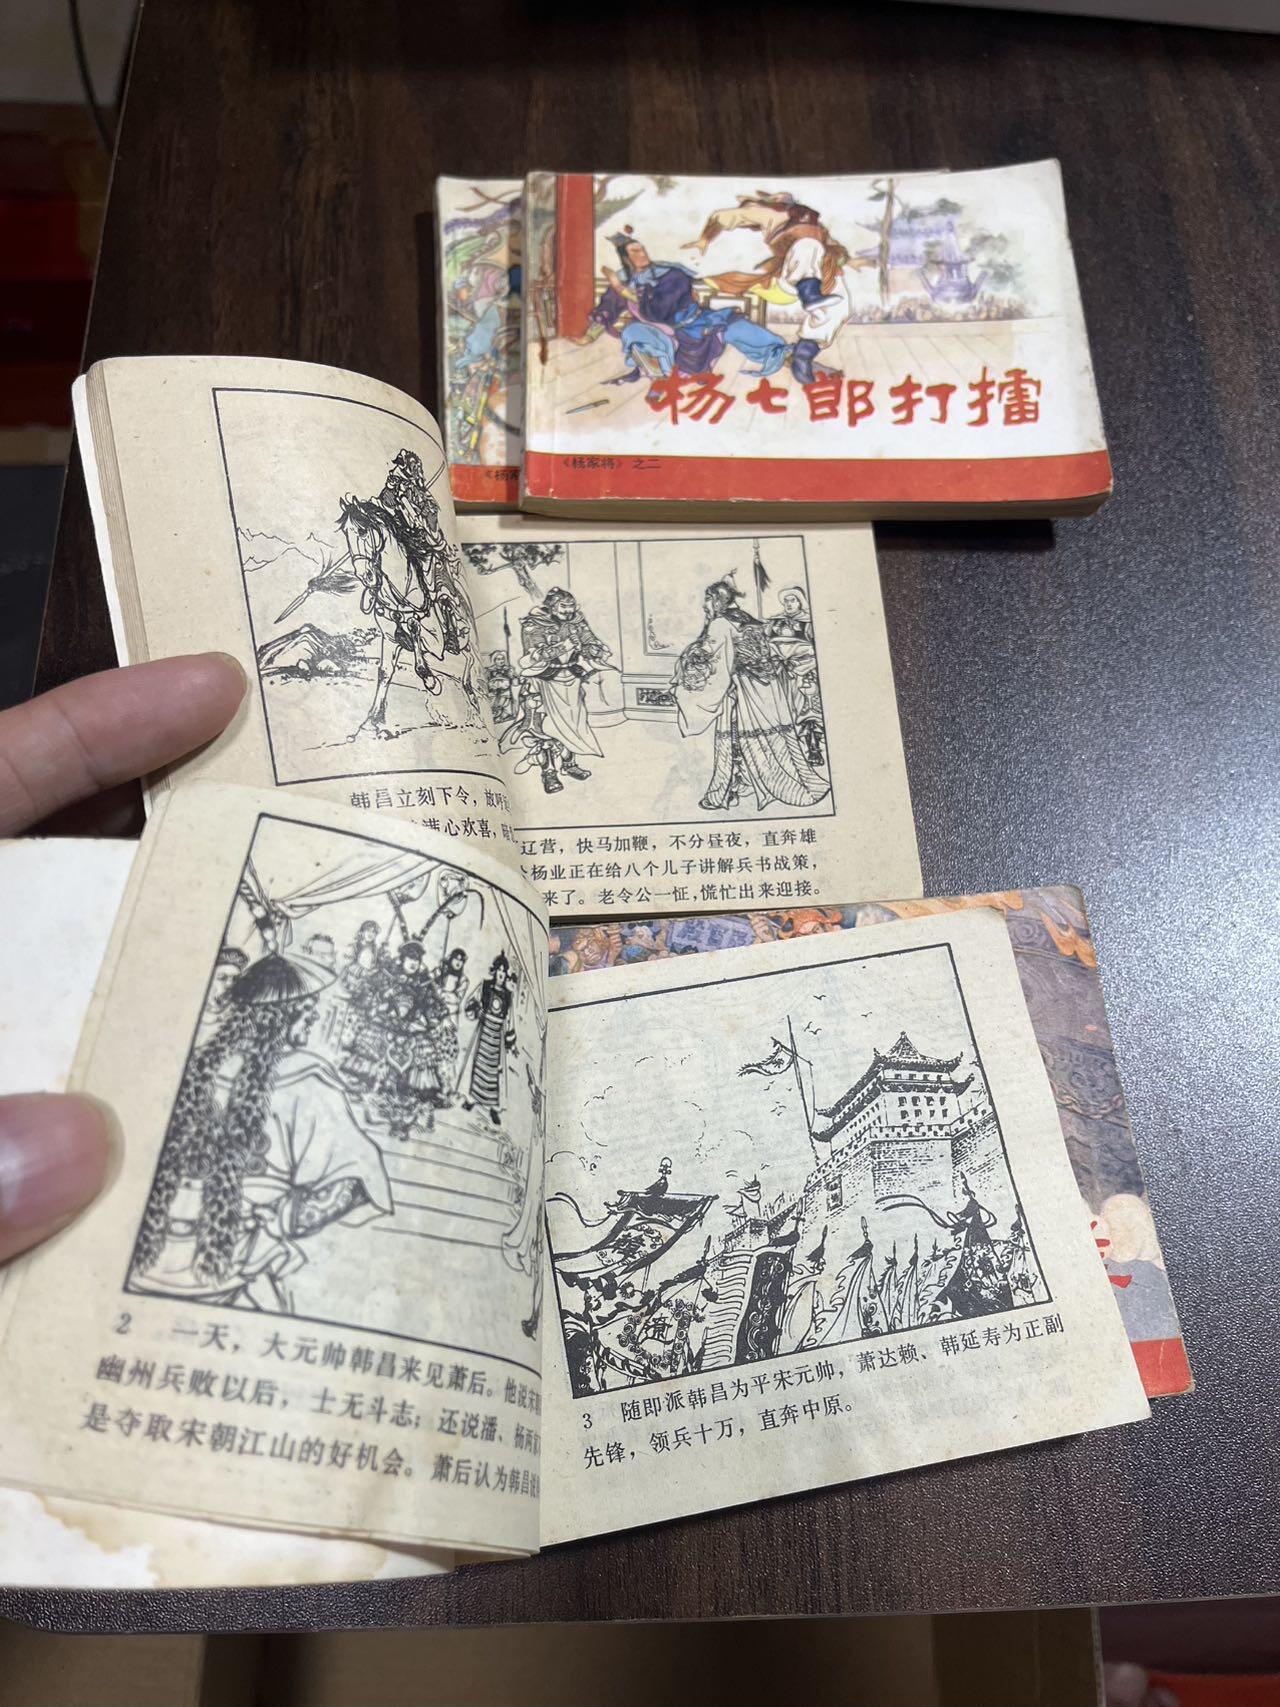 杨七郎打擂
《杨家将》之二
《杨家
韩昌立刻下令，放呼
满心欢喜，
辽营，快马加鞭，不分昼夜，直奔雄
杨业正在给八个儿子讲解兵书战策，
来了。老令公一怔，慌忙出来迎接。
2 一天，大元帅韩昌来见萧后。他说宋
幽州兵败以后，士无斗志；还说潘、杨两
是夺取宋朝江山的好机会。萧后认为韩昌说
3 随即派韩昌为平宋元帅，萧达赖、韩延寿为正副
先锋，领兵十万，直奔中原。